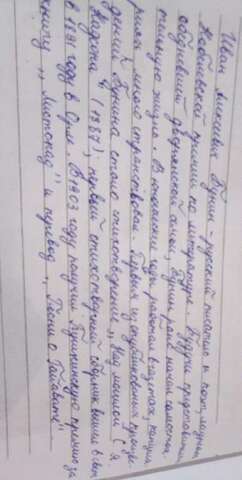 Иван Алексеевич Бунин - русский писатель и поэт, лауреат
Нобелевской премии по литературе. Будучи представителем
обедневшей дворянской семьи, Бунин рано начал самостоя-
тельную жизнь. В юношеские годы работал в газетах, канцеля
риях, много странствовал. Первым из опубликованных произве-
дений Бунина стало стихотворение „Над могилой С. Я.
Надсона" (1887); первый стихотворный сборник вышел в свет
в 1891 году в Орле. В 1903 году получил Пушкинскую премию за
книгу „Листопад" и перевод „Песни о Гайавате"